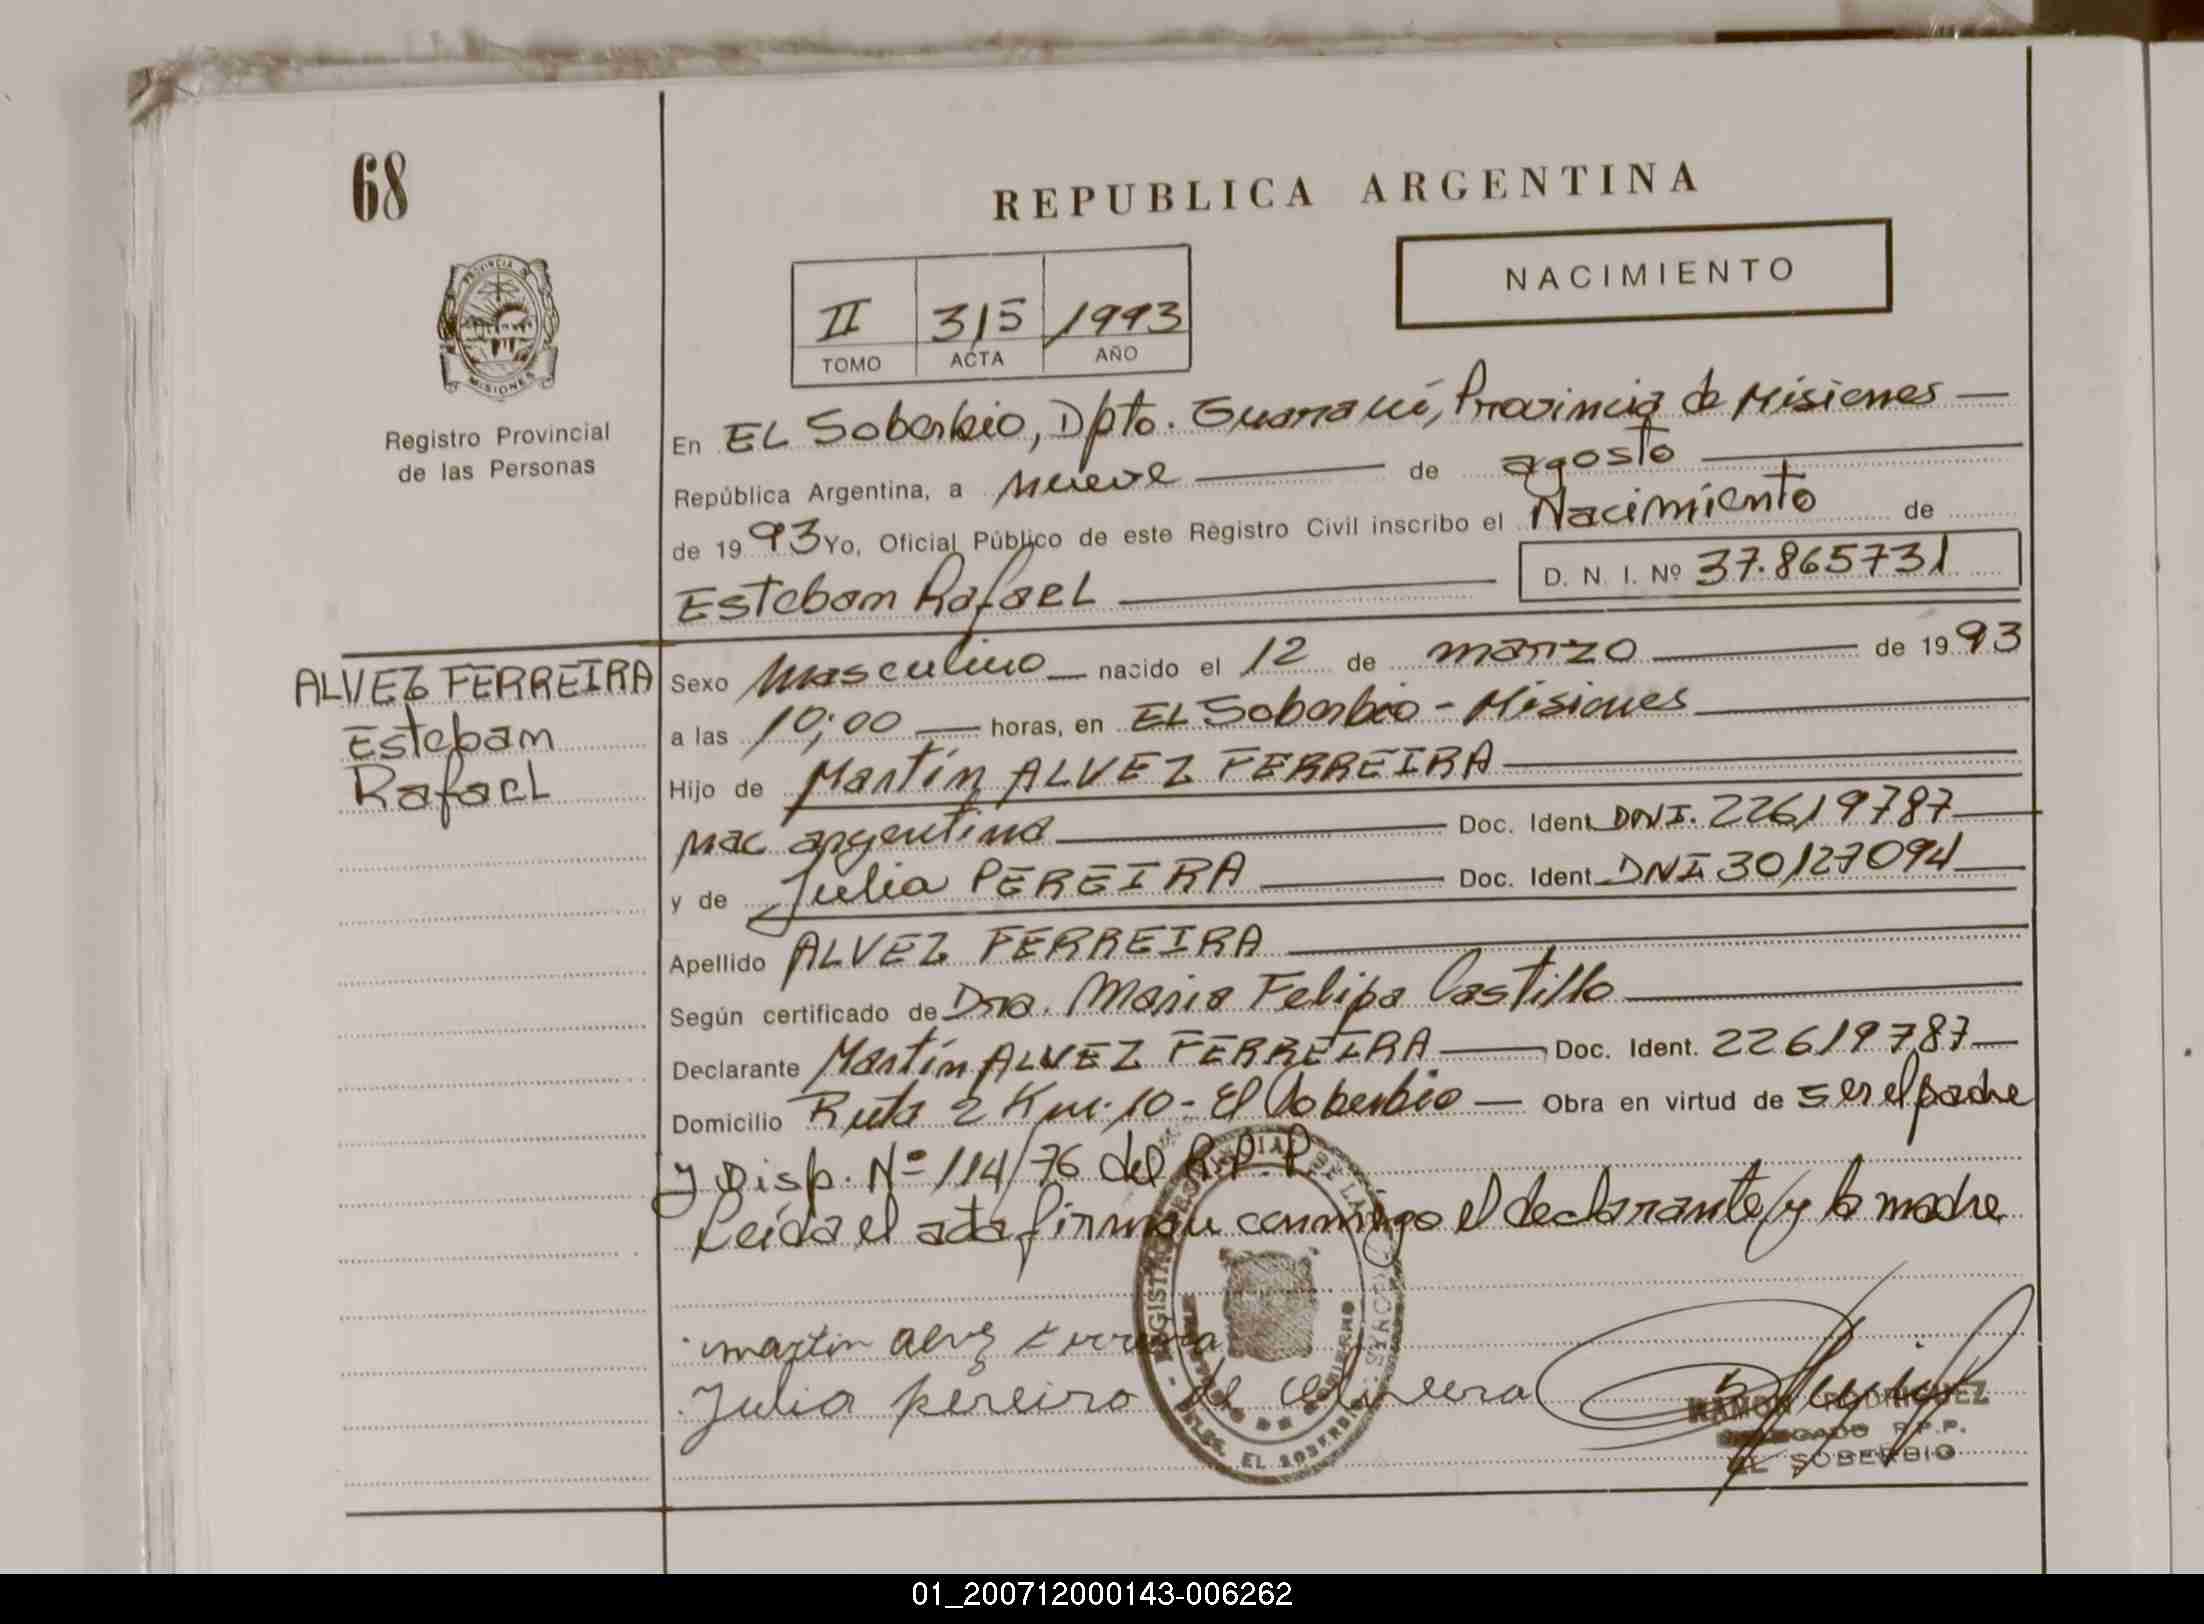 68
REPUBLICA ARGENTINA
NACIMIENTO
II 315 1993
TOMO ACTA AÑO
PROVINCIA DE MISIONES
Registro Provincial
de las Personas
En EL Soberbio, Dpto. Guaraní, Provincia de Misiones
República Argentina, a nueve de agosto
de 1993 Yo, Oficial Público de este Registro Civil inscribo el Nacimiento de
Esteban Rafael D. N. I. Nº 37.865731
ALVEZ FERREIRA
Esteban
Rafael
Sexo Masculino nacido el 12 de marzo de 1993
a las 10;00 horas, en EL Soberbio - Misiones
Hijo de Martín ALVEZ FERREIRA
nac argentina Doc. Ident. DNI. 22619787
y de Julia PEREIRA Doc. Ident. DNI 30127094
Apellido ALVEZ FERREIRA
Según certificado de Dra. Maria Felipa Castillo
Declarante Martín ALVEZ FERREIRA Doc. Ident. 22619787
Domicilio Ruta 2 Km. 10 - El Soberbio Obra en virtud de ser el padre
y Disp. Nº 114/76 del R.P.P.
Leída el acta firman conmigo el declarante y la madre
martin alvez Ferreira
Julia pereira de
RAMON RODRIGUEZ
DELEGADO R.P.P.
EL SOBERBIO
MINISTERIO DE GOBIERNO
DELEG. EL SOBERBIO
01_200712000143-006262